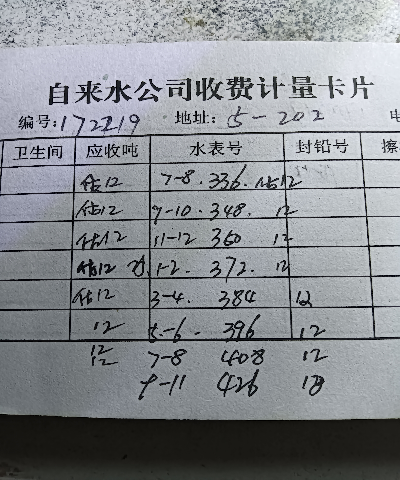 自来水公司收费计量卡片
编号:172219 地址:5-202 电
卫生间 应收吨 水表号 封铅号 擦
估12 7-8. 336. 估12
估12 9-10. 348. 12
估12 11-12 360 12
估12 1-2. 372. 12
估12 3-4. 384 12
12 5-6. 396 12
12
12 7-8 408 12
9-11 426 18